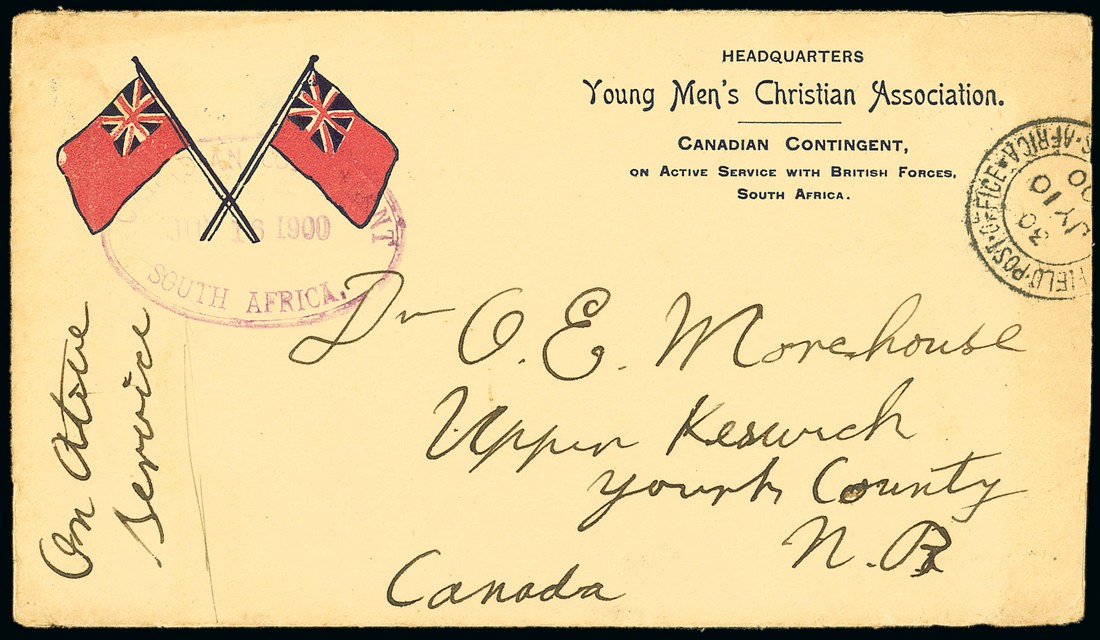 HEADQUARTERS
Young Men's Christian Association.
CANADIAN CONTINGENT,
ON ACTIVE SERVICE WITH BRITISH FORCES,
SOUTH AFRICA.
16 1900
SOUTH AFRICA.
FIELD·POST·OFFICE·S·AFRICA
30
JY 10
00
Dr O. E. Morehouse
Upper Keswick
Yourk County
N. B
Canada
On Ative
Service